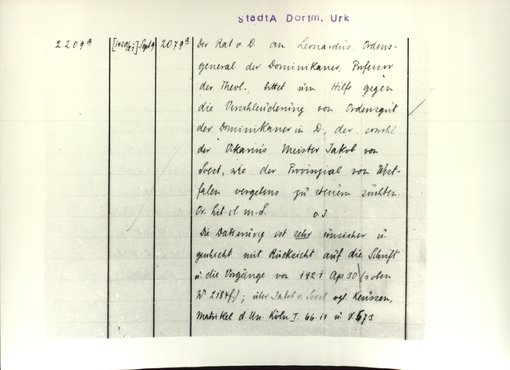 StadtA Dortm. Urk.
2209a [1420/21] Sept 9 2079a Der Rat v. D. an Leonardus, Ordens-
general der Dominikaner, Professor
der Theol., bittet um Hilfe gegen
die Verschleuderung von Ordensgut
der Dominikaner in D., der sowohl
der Vikarius Meister Jakob von
Soest, wie der Provinzial von West-
falen vergebens zu steuern suchten.
Or. lit. cl. m. S.
Die Datierung ist sehr unsicher u.
gemacht mit Rücksicht auf die Schrift
u. die Vorgänge von 1421 Ap. 30 (s. oben
Nr 2184f.); über Jakob v. Soest vgl. Keussen,
Matrikel d. Un. Köln I. 66.19 u.